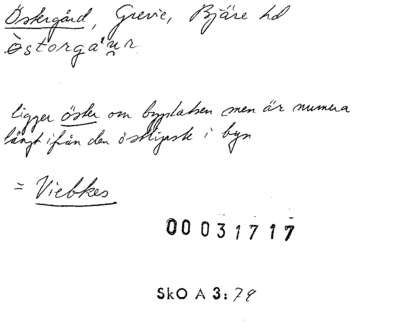 Östergård, Grevie, Bjäre hd
Östorgår
ligger öster om byplatsen men är numera
långt ifrån den östligaste i byn
= Viebkes
00031717
SkO A 3:79